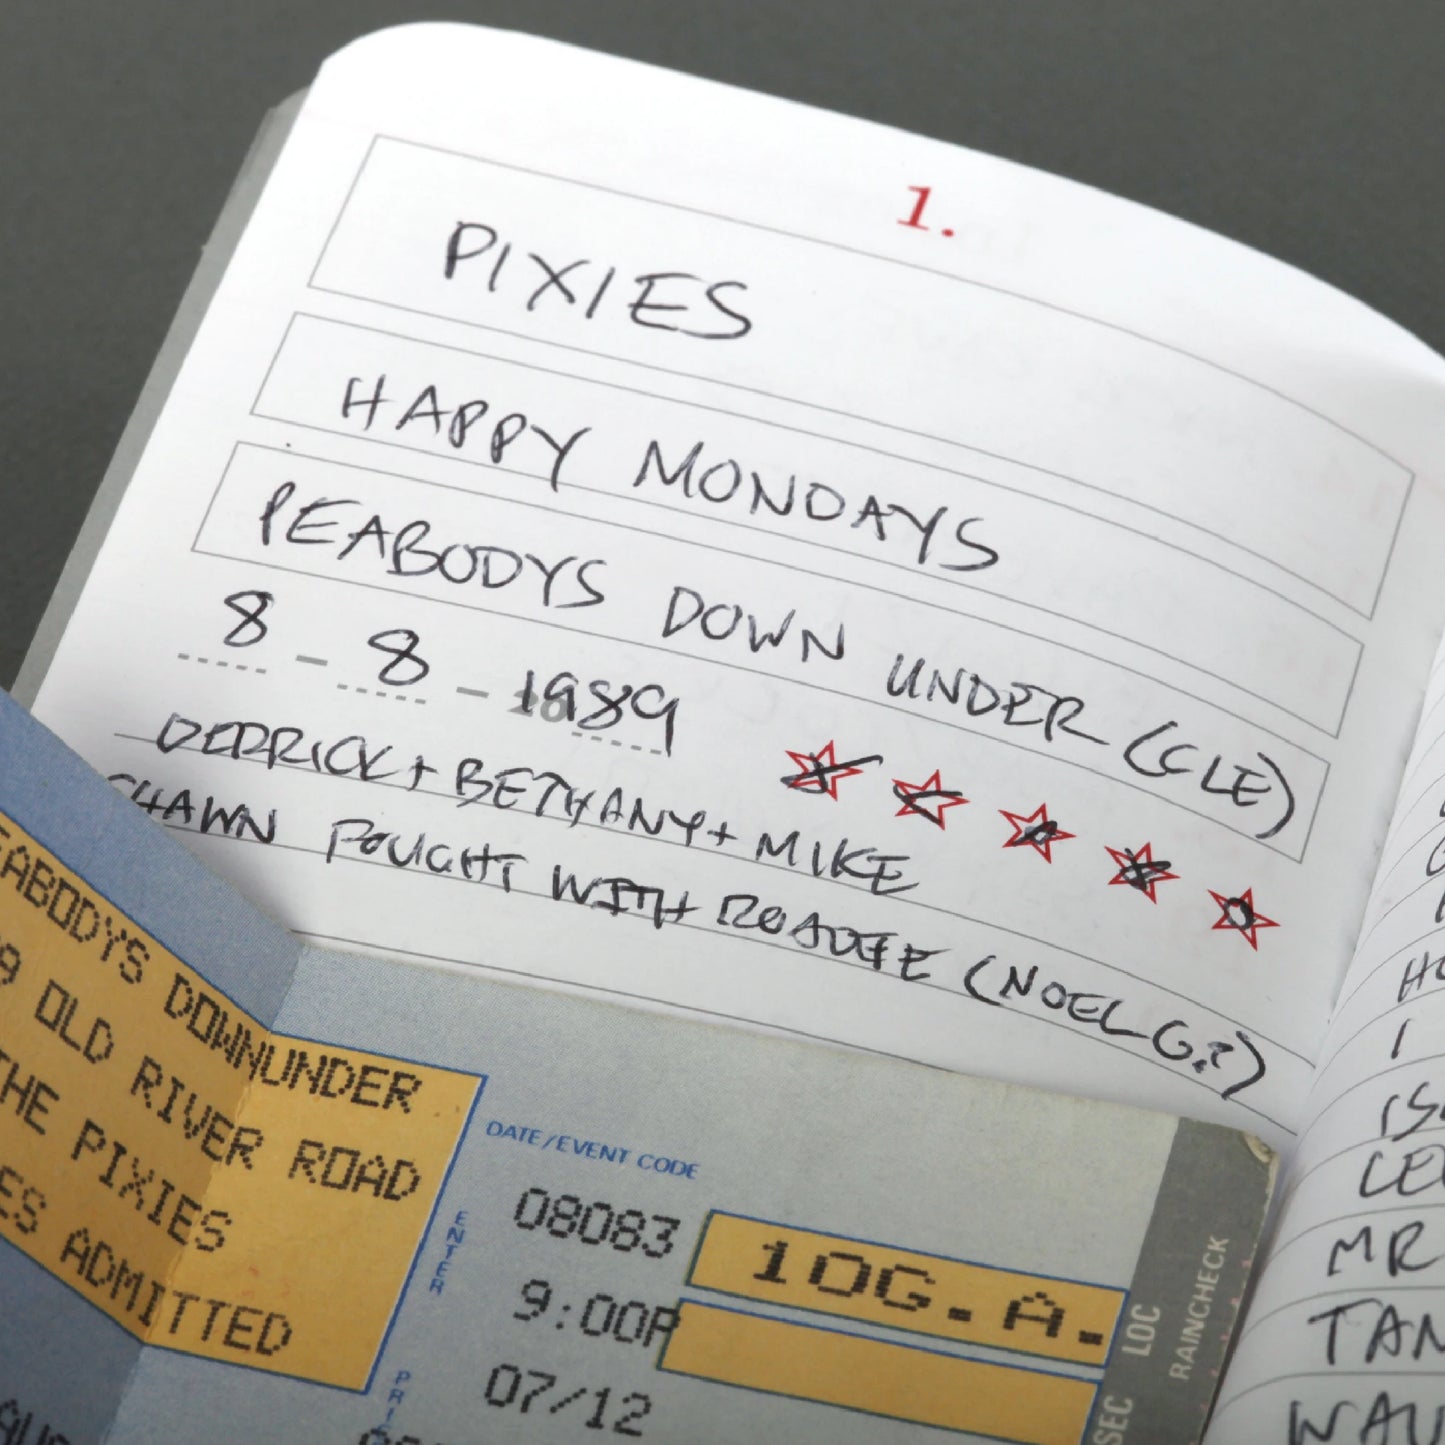 1.
PIXIES
HAPPY MONDAYS
PEABODYS DOWN UNDER (CLE)
8 - 8 - 1989
DERRICK + BETHANY + MIKE
SHAWN FOUGHT WITH ROADIE (NOEL G?)
EABODYS DOWNUNDER
9 OLD RIVER ROAD
THE PIXIES
ES ADMITTED
DATE/EVENT CODE
08083
9:00P
07/12
ENTER
10G.A.
LOC
SEC
RAINCHECK
I
MR
TAN
WAU